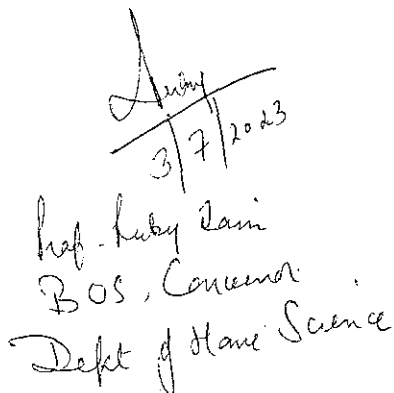 3/7/2023
Prof. Ruby Jain
BOS, Convenor
Deptt of Home Science